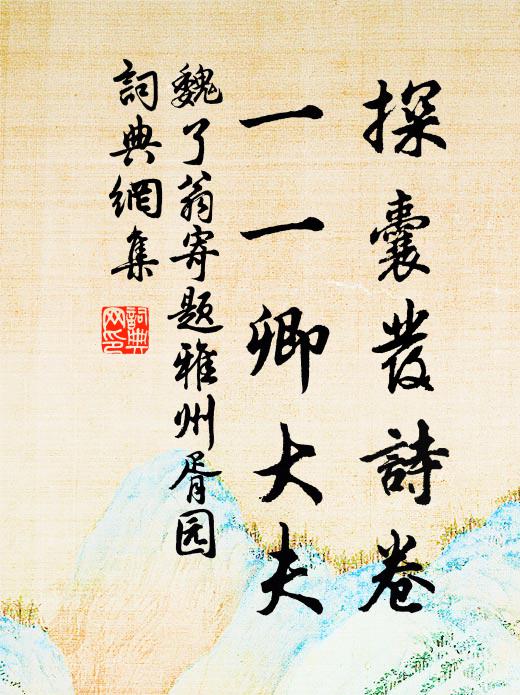 探囊發詩卷
一一卿大夫
魏了翁寄题雅州胥园
詞典網集
詞典网印